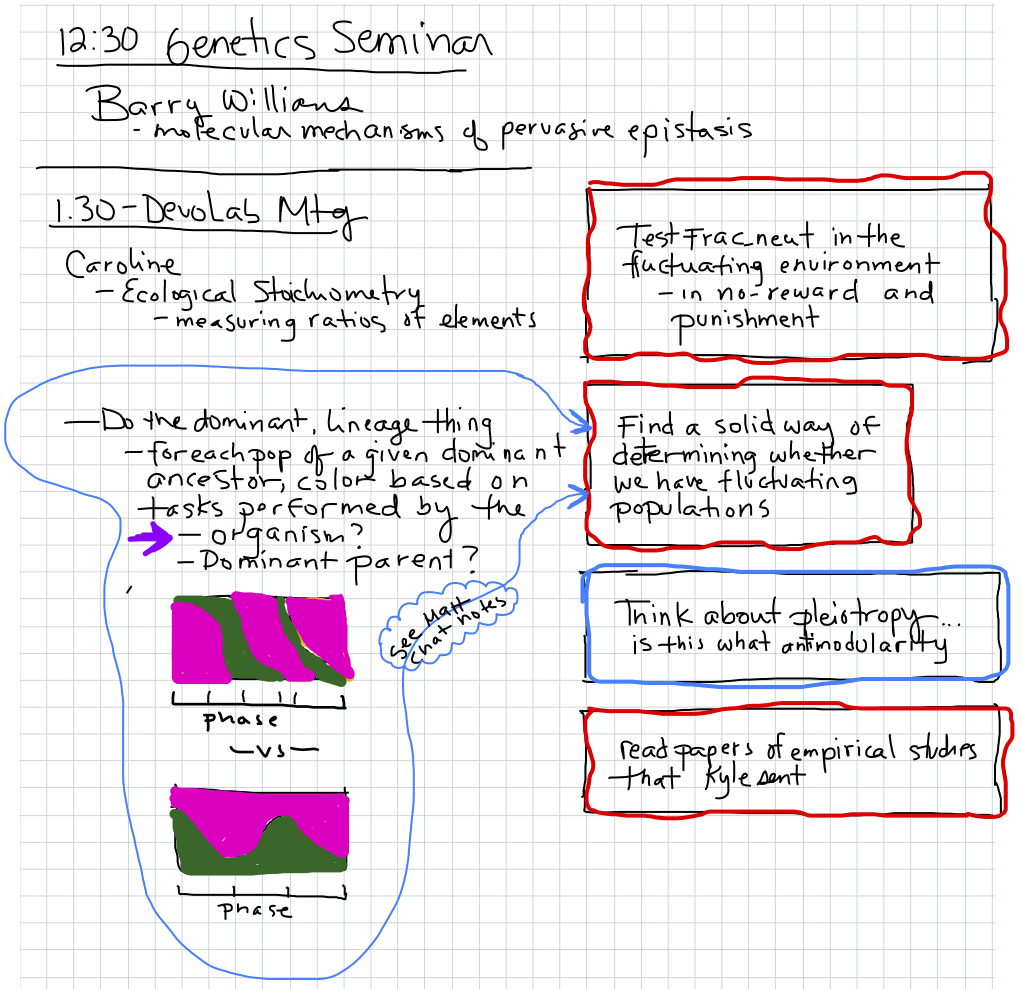 12:30 Genetics Seminar
Barry Williams
- molecular mechanisms of pervasive epistasis
1.30 - DevoLab Mtg
Caroline
- Ecological Stoichiometry
- measuring ratios of elements
- Do the dominant, lineage thing
- for each pop of a given dominant
ancestor, color based on
tasks performed by the
- organism?
- Dominant parent?
phase
- vs -
phase
See Matt
chat notes
Test Frac_neut in the
fluctuating environment
- in no-reward and
punishment
Find a solid way of
determining whether
we have fluctuating
populations
Think about pleiotropy...
is this what antimodularity
read papers of empirical studies
that Kyle sent